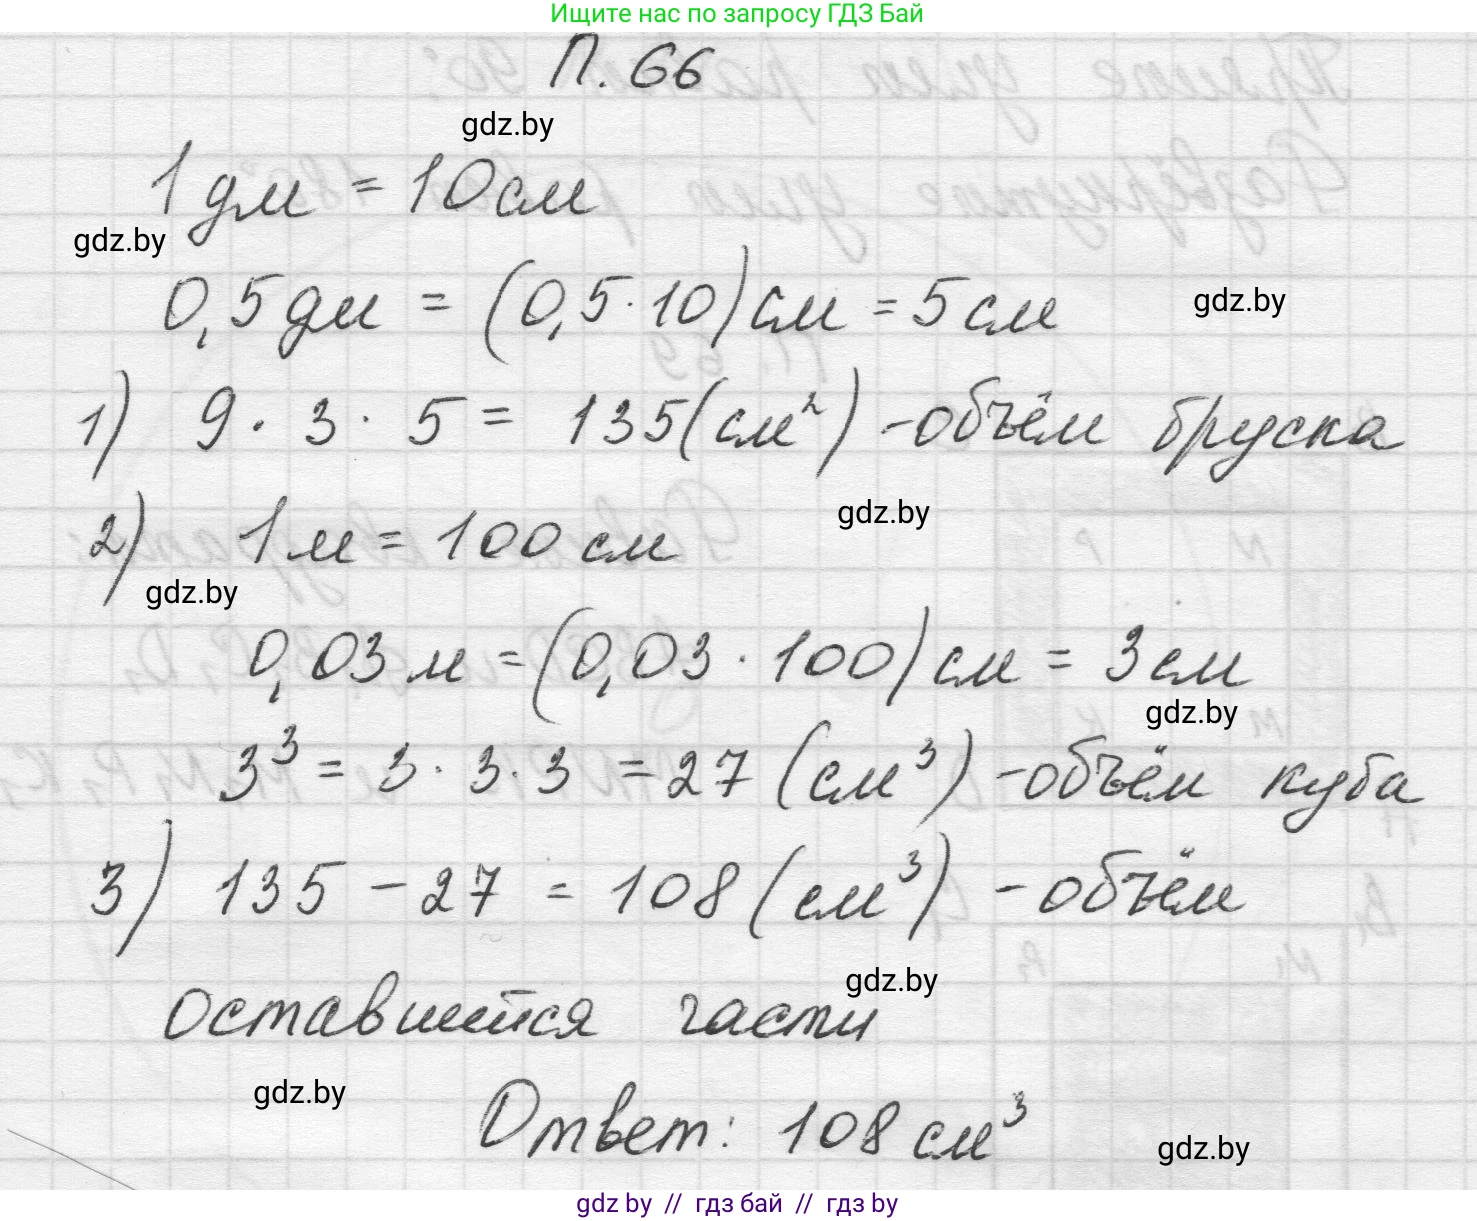 Ищите нас по запросу ГДЗ Бай
П. 66
gdz.by
1 дм = 10 см
gdz.by
0,5 дм = (0,5 · 10) см = 5 см
gdz.by
1) 9 · 3 · 5 = 135 (см²) - объём бруска
gdz.by
2) 1 м = 100 см
gdz.by
0,03 м = (0,03 · 100) см = 3 см
gdz.by
3³ = 3 · 3 · 3 = 27 (см³) - объём куба
3) 135 - 27 = 108 (см³) - объём
gdz.by
оставшейся части
gdz.by
Ответ: 108 см³
gdz.by
gdz by // гдз бай // гдз by